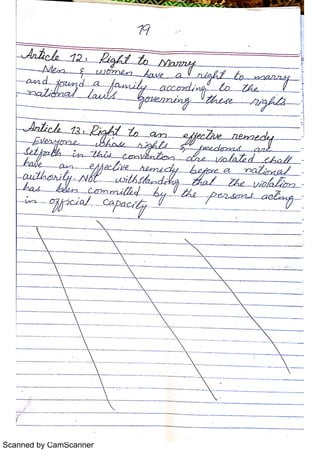 19
Article 12: Right to Marry
Men & women have a right to marry
and found a family according to the
national laws governing these rights
Article 13: Right to an effective remedy
Everyone whose rights & freedoms are
setforth in this convention are violated shall
have an effective remedy before a national
authority. Not withstanding that the violation
has been committed by the persons acting
in official capacity
Scanned by CamScanner